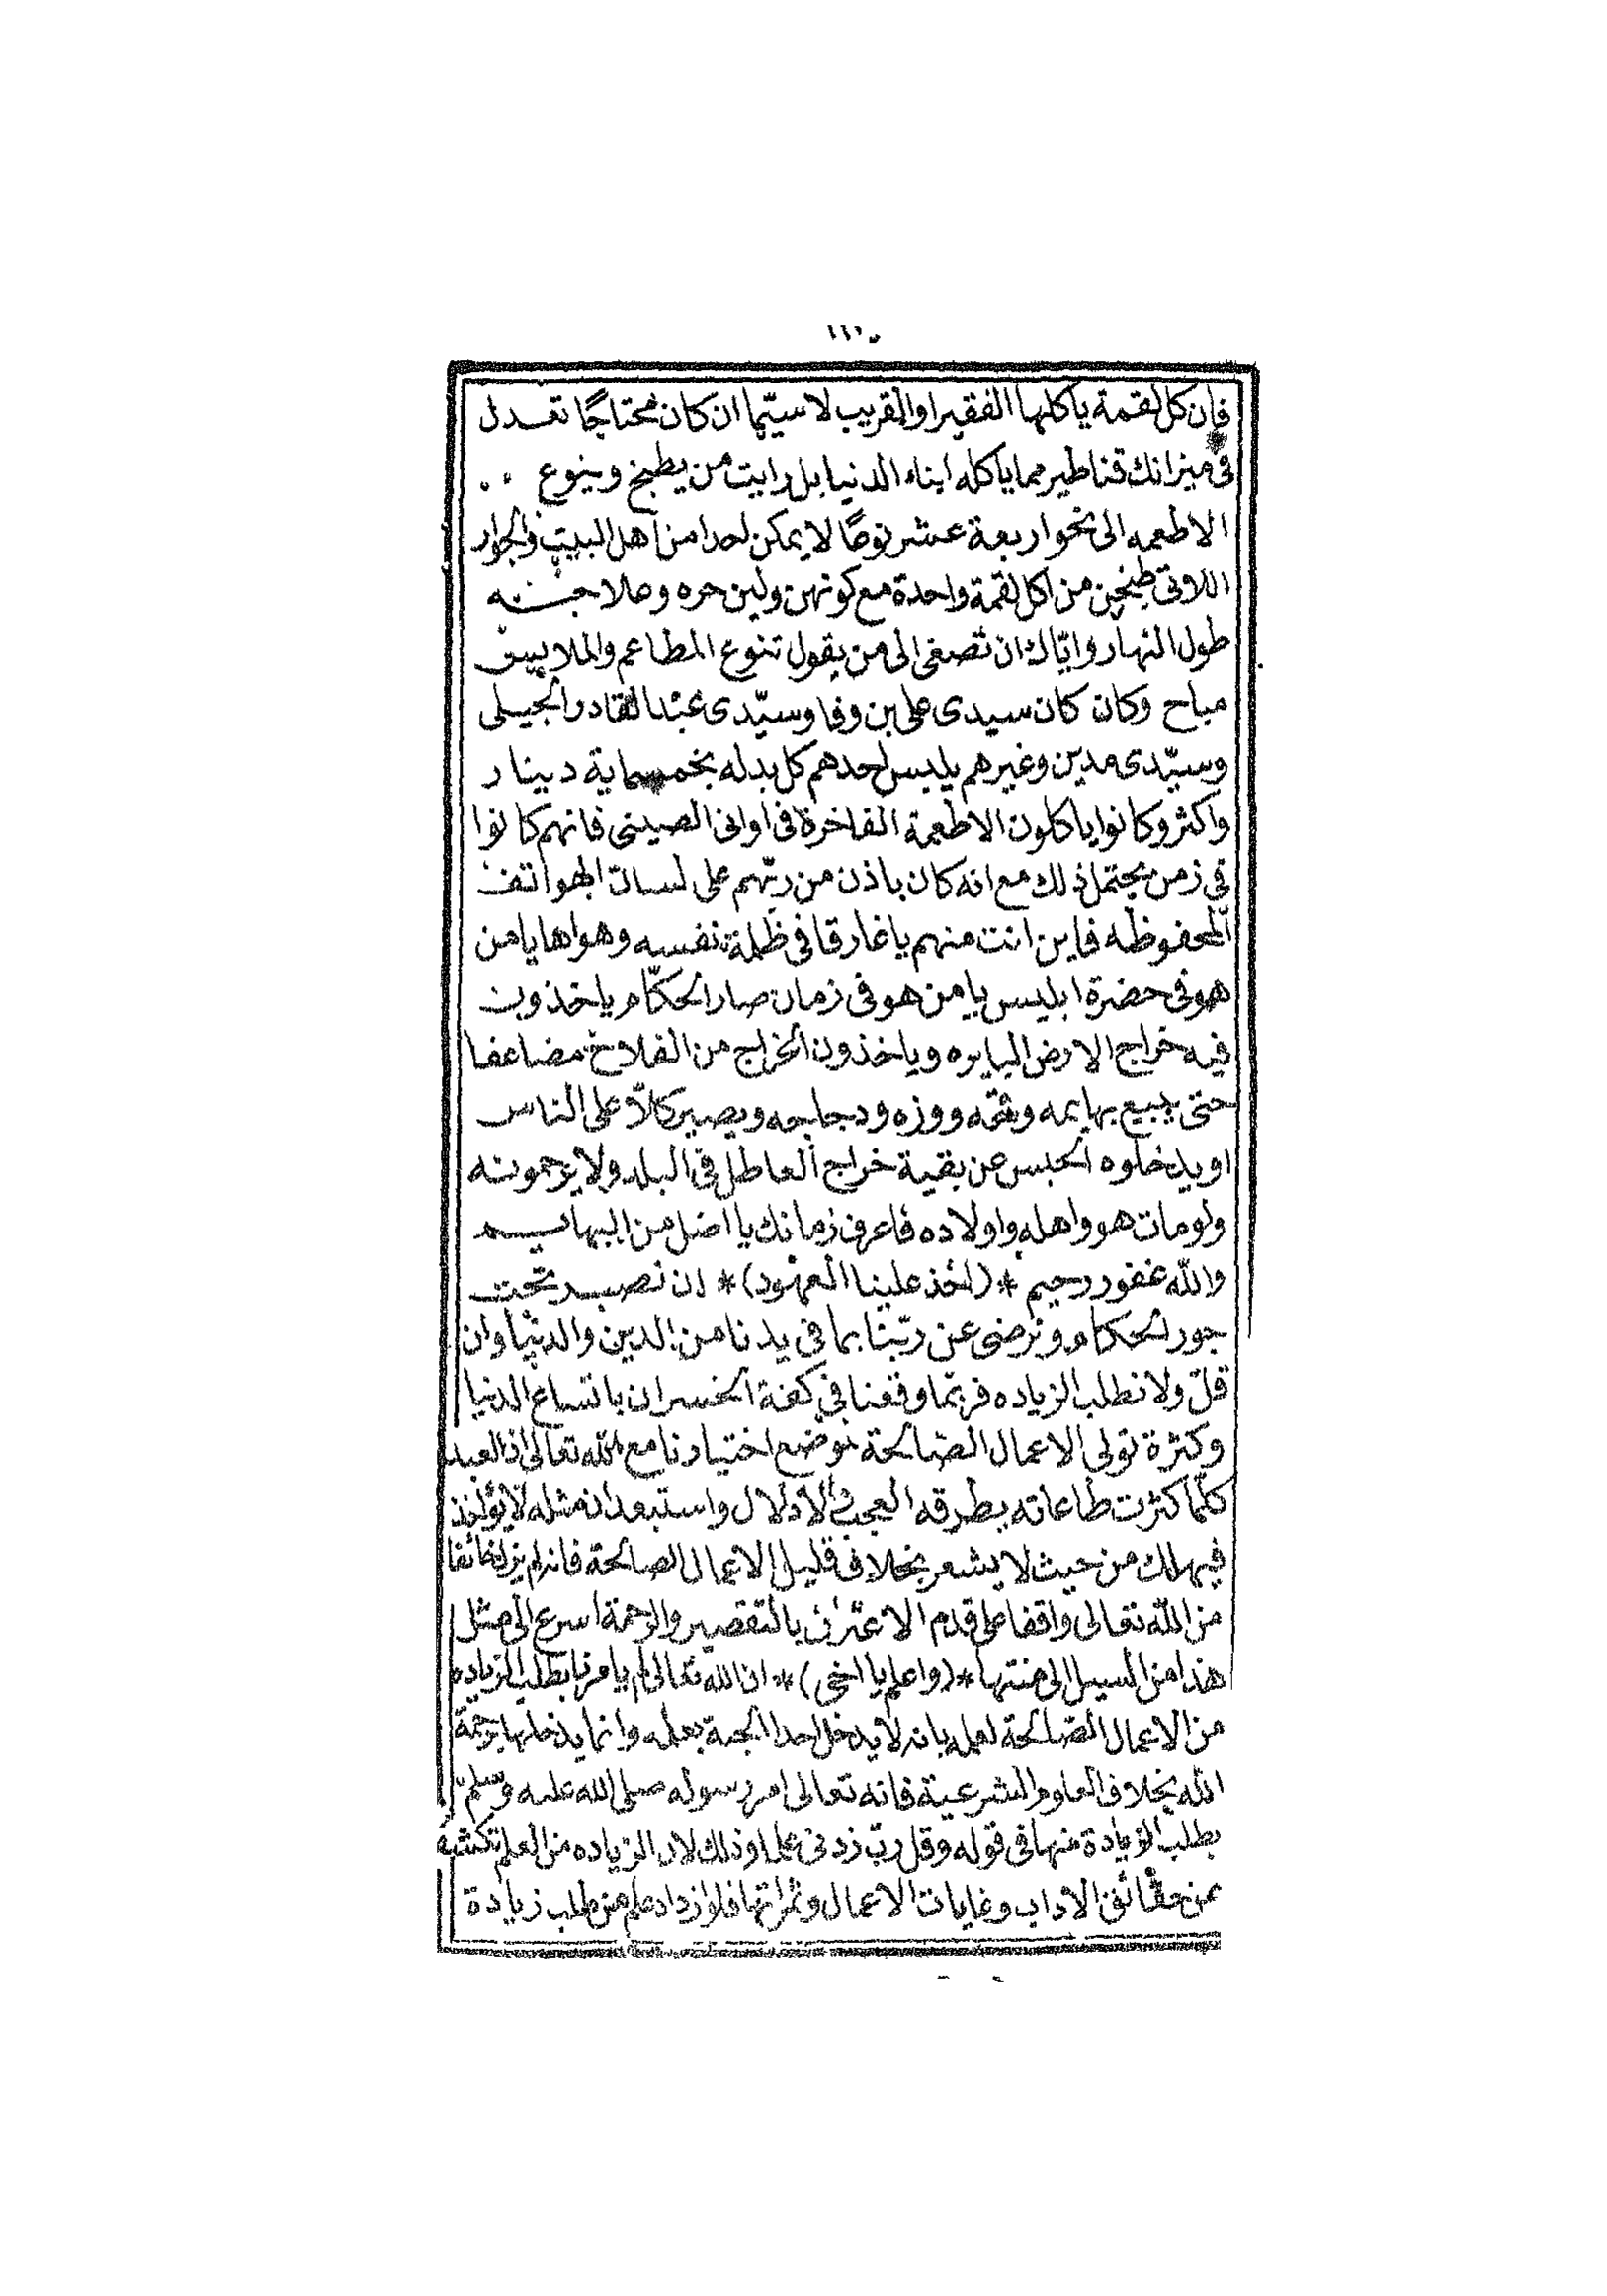 ١١٠
فإن كل لقمة ياكلها الفقير او القريب لا سيّما ان كان محتاجًا تعدل
فى ميزانك قناطير مما ياكله ابناء الدنيا بل رايت من يطبخ وينوع
الاطعمه الى نحو اربعة عشر نوعًا لا يمكن احدا من اهل البيت والجوار
اللاتى طبخين من اكل لقمة واحدة مع كونهن ولين حره وعلاجه
طول النهار وايّاك ان تصغى الى من يقول تنوع المطاعم والملابس
مباح وكان كان سيدى على بن وفا وسيّدى عبد القادر الجيلى
وسيّدى مدين وغيرهم يلبس احدهم كل بدله بخمسماية دينار
واكثر وكانوا ياكلون الاطعمة الفاخرة فى اوانى الصينى فانهم كانوا
فى زمن يحتمل ذلك مع انه كان باذن من ربّهم على لسان الهواتف
المحفوظه فاين انت منهم ياغارقا فى ظلمة نفسه وهواها يا من
هو فى حضرة ابليس يا من هو فى زمان صار الحكّام ياخذون
فيه خراج الارض البايره وياخذون الخراج من الفلاح مضاعفا
حتى يبيع بهايمه وغنمه ووزه ودجاجه ويصير كلاّ على الناس
او يدخلوه الحبس عن بقية خراج العاطل فى البلد ولا يرحمونه
ولو مات هو واهله واولاده فاعرف زمانك يا اضل من البهايم
والله غفور رحيم * (اخذ علينا العهود) * ان نصبر تحت
جور الحكام ونرضى عن ربّنا بما فى يدنا من الدين والدنيا وان
قلّ ولا نطلب الزياده فربّما وقفنا فى كفة الخسران باتساع الدنيا
وكثرة تولى الاعمال الصّالحة نوضع اختيارنا مع الله تعالى اذ العبد
كلّما كثرت طاعاته يطرقه العجب والادلال واستبعد ان مثله لا يؤاخذ
فيهلك من حيث لا يشعر بخلاف قليل الاعمال الصالحة فانه لم يزل خائفا
من الله تعالى واقفا على قدم الاعتراف بالتقصير والرحمة اسرع الى مثل
هذا من السيل الى منتهاه * (واعلم يا اخى) * ان الله تعالى لم يامرنا بطلب الزياده
من الاعمال الصّالحة لعلمه بانه لا يدخل احدا الجنة بعمله وانما يدخلها برحمة
الله بخلاف العلوم الشرعية فانه تعالى امر رسوله صلى الله عليه وسلّم
بطلب الزيادة منها فى قوله وقل ربّ زدنى علما وذلك لان الزياده من العلم تكشف
عن حقائق الاداب وغايات الاعمال وثمراتها فلو ازداد علم من طلب زيادة